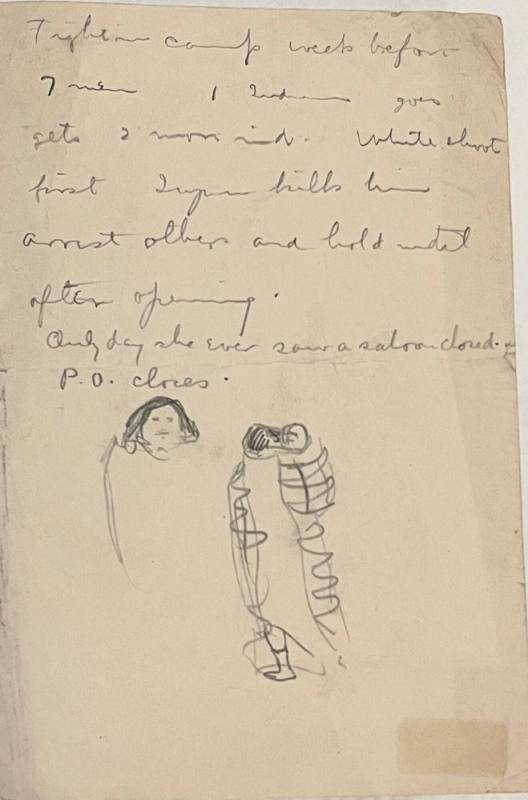 camp week before
7 men 1 Indian goes
gets 2 more ind. White shoot
first kills him
arrest others and hold until
after opening.
Only day she ever saw a saloon closed.
P.O. closes.